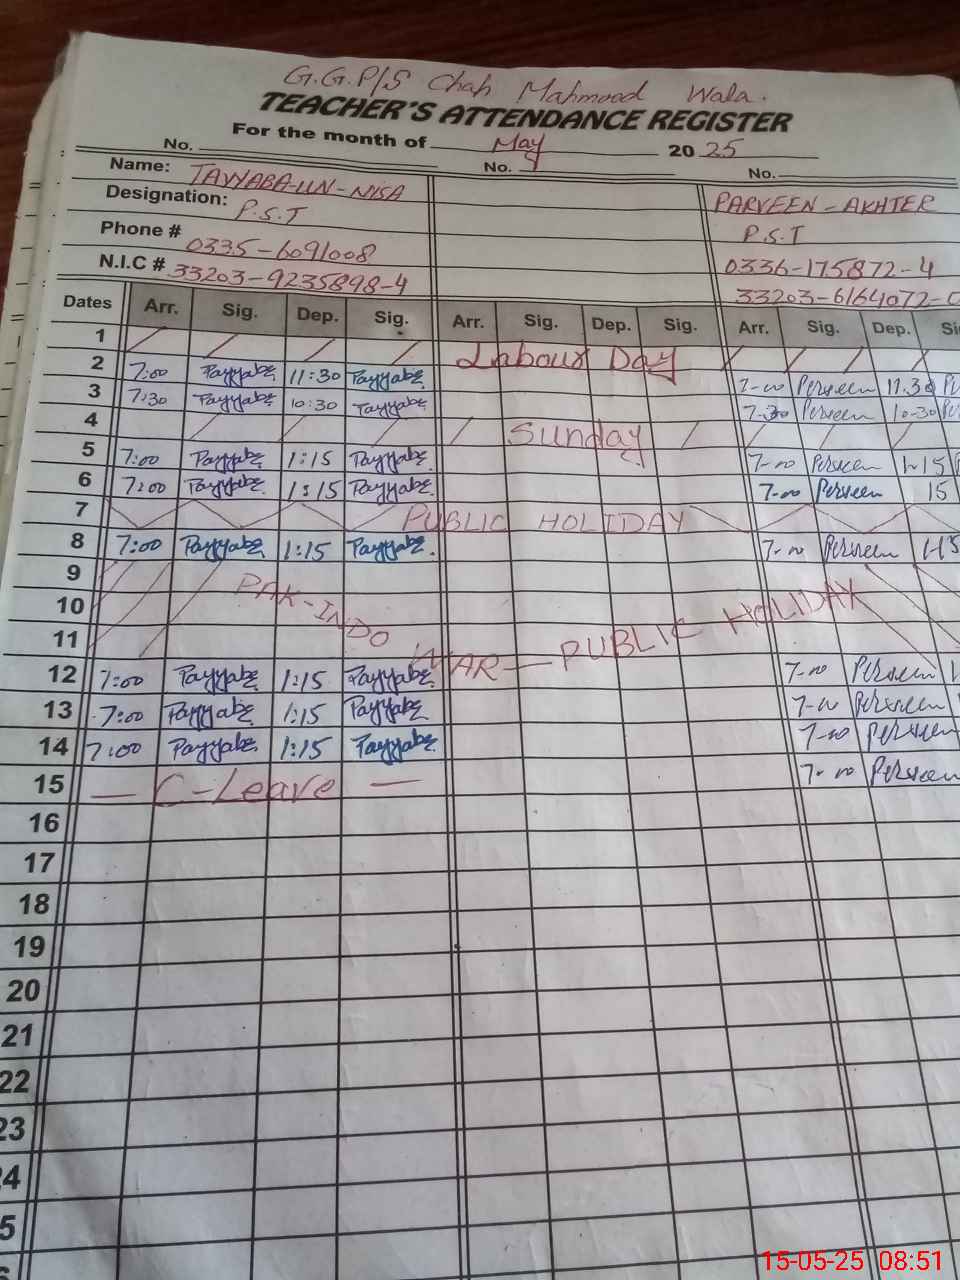 G.G.P/S Chah Mahmood Wala.
TEACHER'S ATTENDANCE REGISTER
For the month of May 2025
No. No. No.
Name: TAYYABA-UN-NISA PARVEEN-AKHTER
Designation: P.S.T P.S.T
Phone # 0335-6091008 0336-175872-4
N.I.C # 33203-9235898-4 33203-6164072-0
Dates Arr. Sig. Dep. Sig. Arr. Sig. Dep. Sig. Arr. Sig. Dep. Si
1 Labour Day
2 7:00 Tayyaba 11:30 Tayyaba 7-00 Perveen 11.30
3 7:30 Tayyaba 10:30 Tayyaba 7-30 Perveen 10-30
4 Sunday
5 7:00 Tayyaba 1:15 Tayyaba 7-00 Perveen 1-15
6 7:00 Tayyaba 1:15 Tayyaba 7-00 Perveen 15
7 PUBLIC HOLIDAY
8 7:00 Tayyaba 1:15 Tayyaba 7-00 Perveen 1-15
9
10 PAK-INDO WAR - PUBLIC HOLIDAY
11
12 7:00 Tayyaba 1:15 Tayyaba 7-00 Perveen
13 7:00 Tayyaba 1:15 Tayyaba 7-00 Perveen
14 7:00 Tayyaba 1:15 Tayyaba 7-00 Perveen
15 — C-Leave — 7-00 Perveen
16
17
18
19
20
21
22
23
24
5
15-05-25 08:51